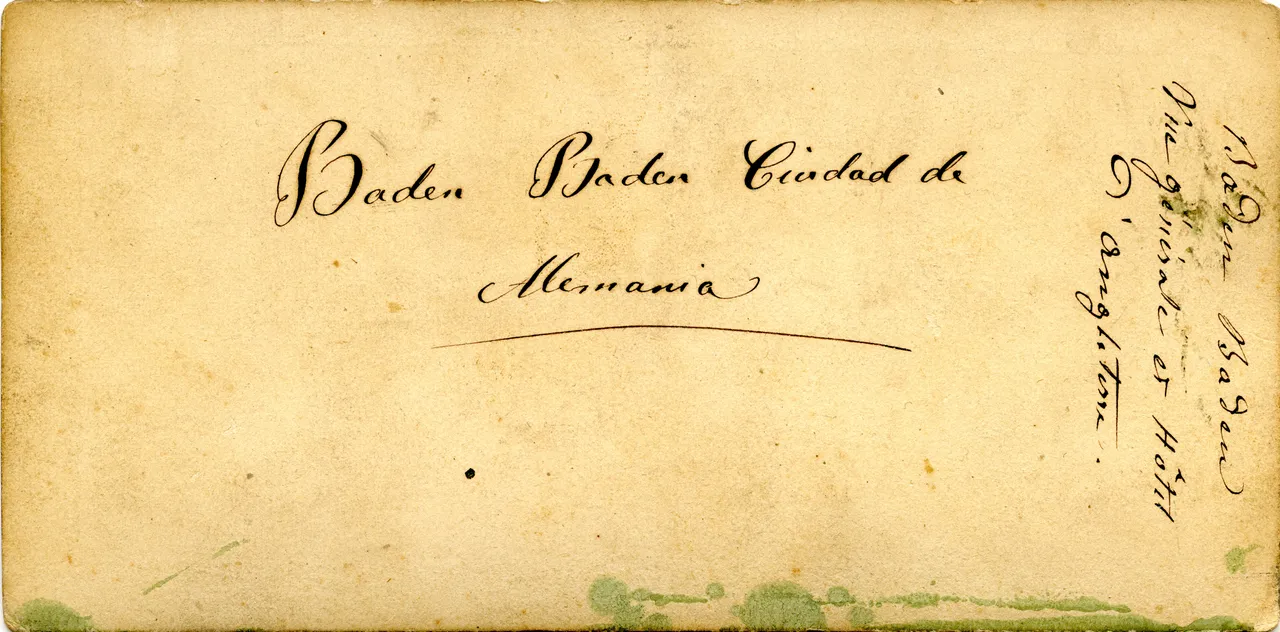 Baden Baden Ciudad de
Alemania
Baden Baden
Vue générale et Hôtel
d'angleterre.